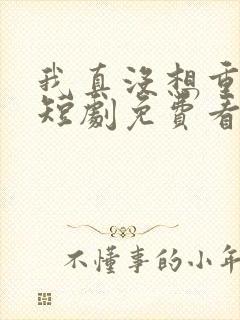 我真没想重
短劇免費看
不懂事的小年